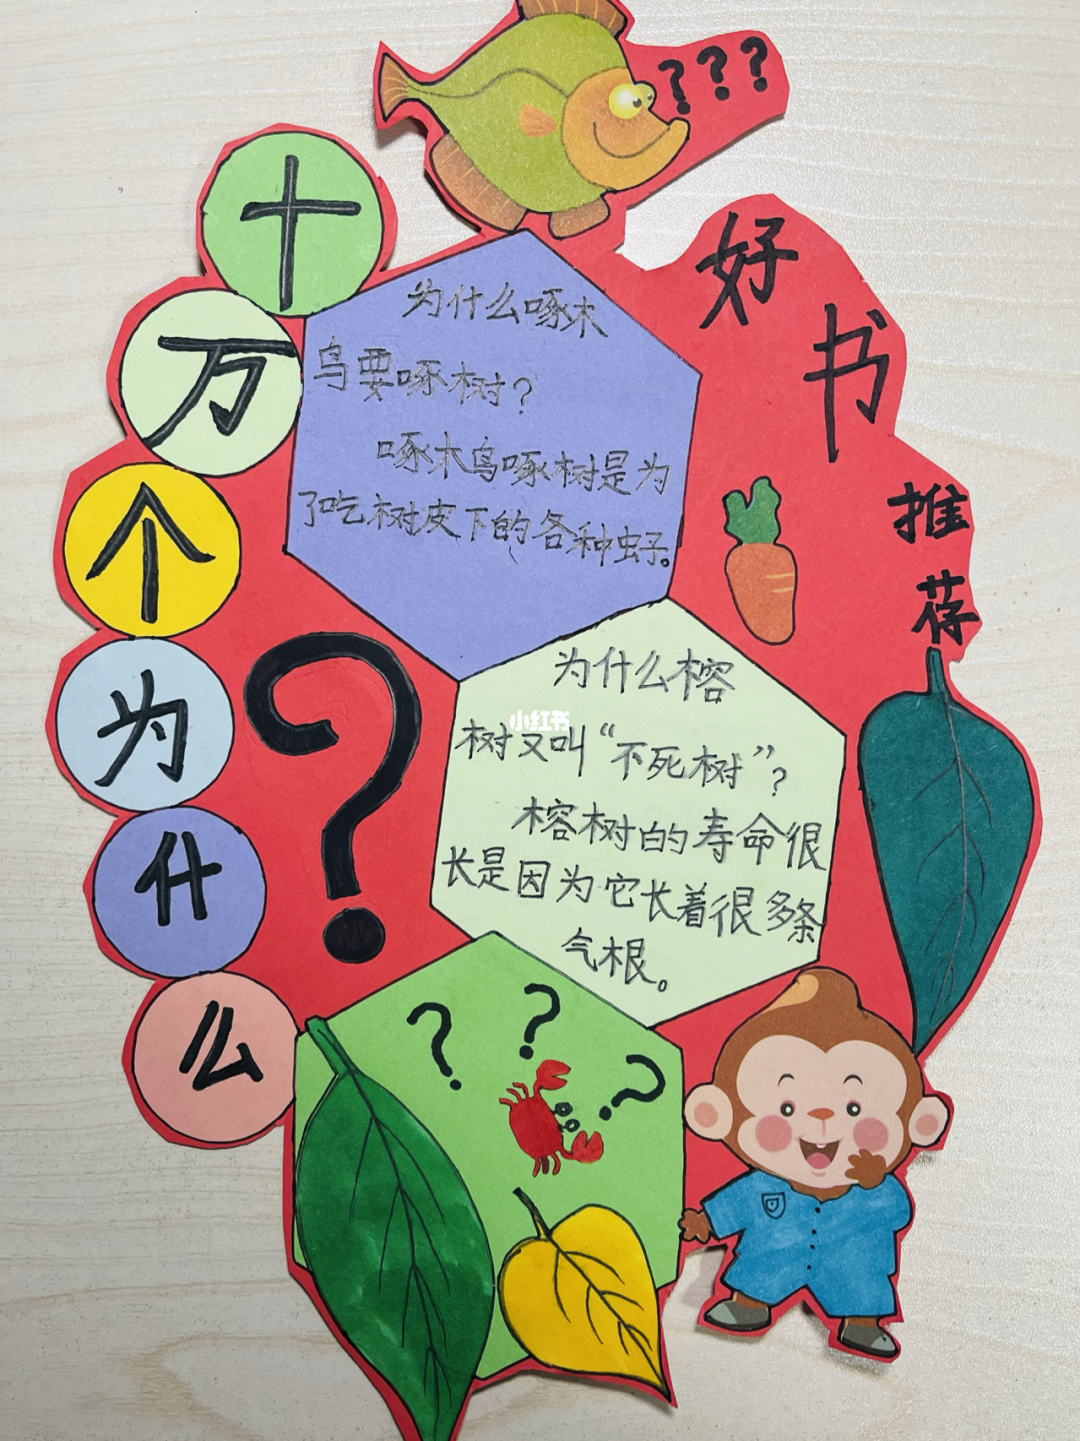 ???
十
万
个
为
什
么
?
好
书
推
荐
为什么啄木
鸟要啄树?
啄木鸟啄树是为
了吃树皮下的各种虫子。
为什么榕
树又叫“不死树”?
榕树的寿命很
长是因为它长着很多条
气根。
小红书
? ? ?